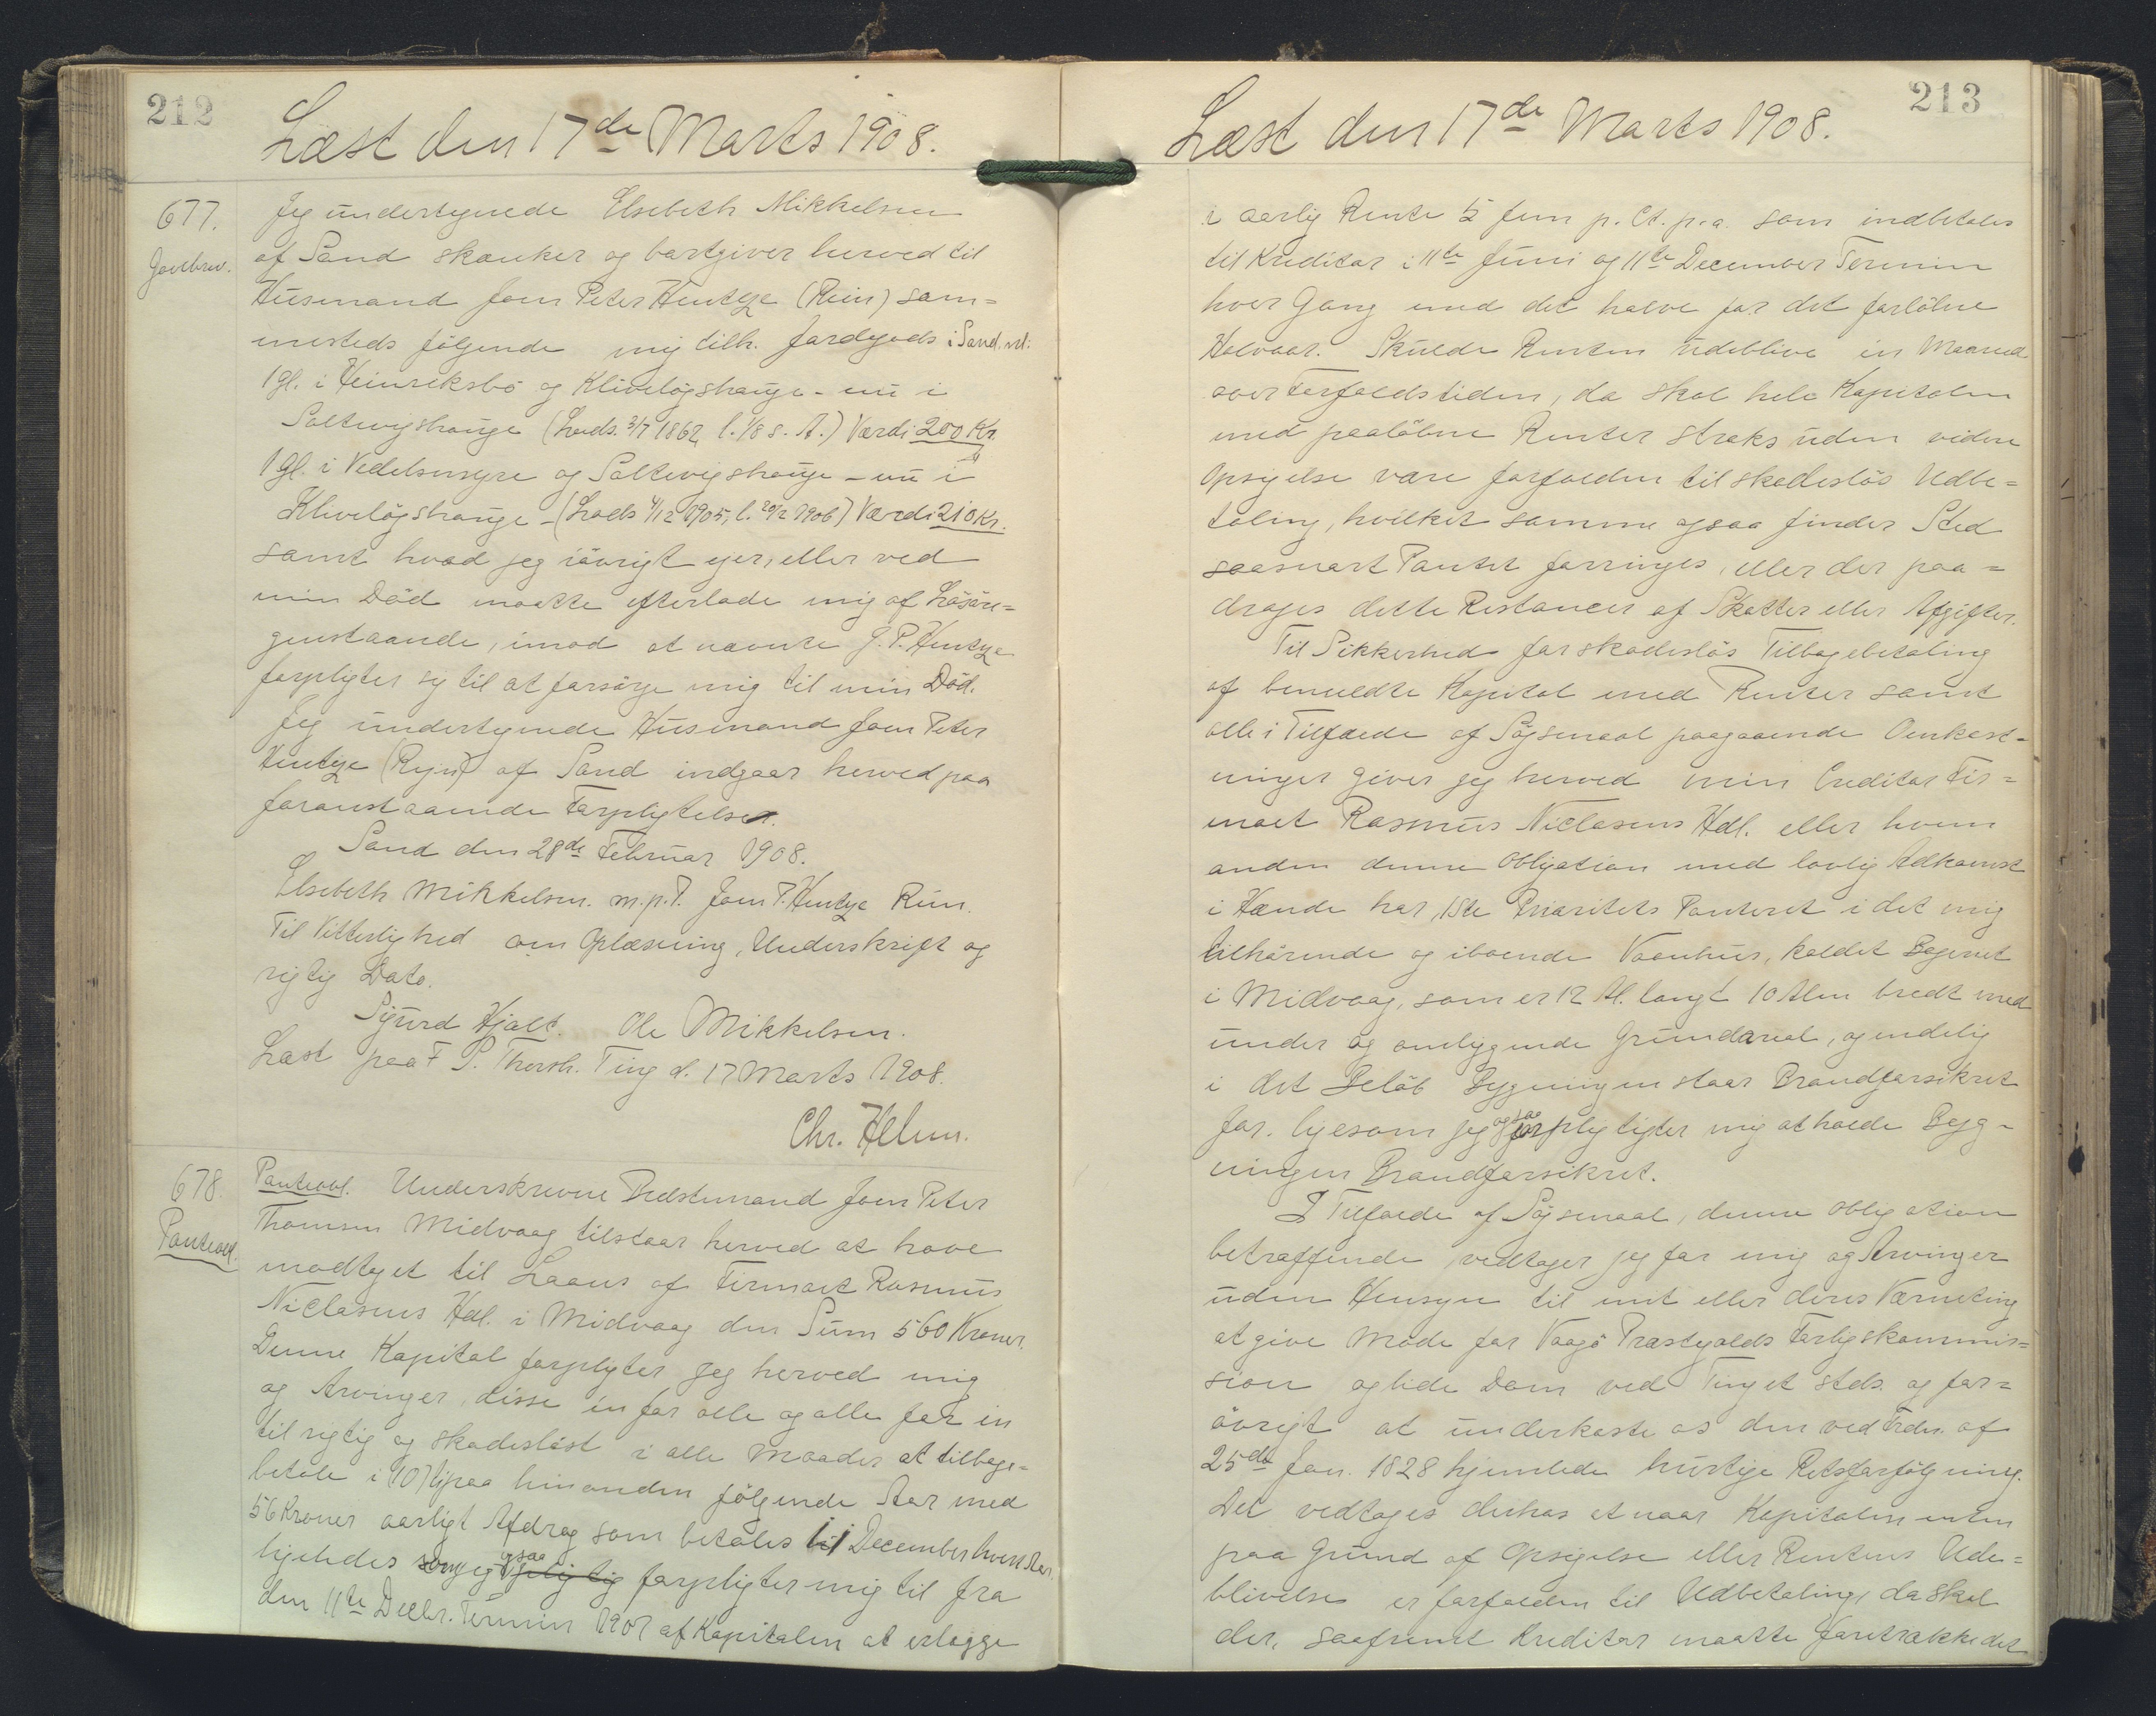 212
Læst den 17de Marts 1908.
677.
Gavebrev.
Jeg undertegnede Elsebeth Mikkelsen
af Sand skænker og bortgiver herved til
Husmand Joen Peter Hentze (Rein) sam=
mesteds følgende mig tilh. Jordgods i Sand. nl:
1 gl. i Heinreksbø og Kliveløgshauge - nu i
Saltevigshauge (Lods. 3/7 1862, l. 1/8 s. A.) Værdi 200 Kr.
1 gl. i Vedelsmyre og Saltevigshauge - nu i
Kliveløgshauge - (Lods 4/12 1905, l. 20/2 1906) Værdi 210 Kr.
samt hvad jeg iøvrigt ejer, eller ved
min Død maatte efterlade mig af Løsøre=
genstaande, imod at nævnte J. P. Hentze
forpligter sig til at forsørge mig til min Død.
Jeg undertegnede Husmand Joen Peter
Hentze (Rejn) af Sand indgaar herved paa
foranstaaende Forpligtelser.
Sand den 28de Februar 1908.
Elsebeth Mikkelsen. m.p.P. Joen P. Hentze Rein.
Til Vitterlighed om Oplæsning, Underskrift og
rigtig Dato.
Sigurd Hjalt. Ole Mikkelsen.
Læst paa F. P. Thorsh. Ting d. 17 Marts 1908.
Chr. Helm.
678.
Panteobl.
Panteobl. Underskrevne Bedstemand Joen Peter
Thomsen Midvaag tilstaar herved at have
modtaget til Laans af Firmaet Rasmus
Niclasens Hdl. i Midvaag den Sum 560 Kroner.
Denne Kapital forpligter jeg herved mig
og Arvinger, disse en for alle og alle for en
til rigtig og skadesløst i alle Maader at tilbage=
betale i (10) ti paa hinanden følgende Aar med
56 Kroner aarligt Afdrag som betales 11 December hvert Aar.
ligeledes som jeg ogsaa forpligter mig til fra
den 11te Decbr. Termin 1907 af Kapitalen at erlægge
213
Læst den 17de Marts 1908.
i aarlig Rente 5 fem p. Ct. p.a. som indbetales
til Kreditor i 11te Juni og 11te December Termin
hver Gang med det halve for det forløbne
Halvaar. Skulde Renten udeblive en Maaned
over Forfaldstiden, da skal hele Kapitalen
med paaløbne Renter straks uden videre
Opsigelse være forfalden til skadesløs Udbe=
taling, hvilket samme ogsaa finder Sted
saasnart Pantet forringes, eller der paa=
drages dette Restancer af Skatter eller Afgifter.
Til Sikkerhed for skadesløs Tilbagebetaling
af bemeldte Kapital med Renter samt
alle i Tilfælde af Søgsmaal paagaaende Omkost=
ninger giver jeg herved min Creditor Fir=
maet Rasmus Niclasens Hdl. eller hvem
anden denne Obligation med lovlig Adkomst
i Hænde har, 1ste Prioritets Panteret i det mig
tilhørende og iboende Vaanhus, kaldet Bøgernet
i Midvaag, som er 12 Al. langt 10 Alen bredt med
under og omliggende Grundareal, og endelig
i det Beløb Bygningen staar Brandforsikret
for. ligesom jeg ogsaa forpligtigter mig at holde Byg=
ningen Brandforsikret.
I Tilfælde af Søgsmaal, denne Obligation
betræffende vedtager jeg for mig og Arvinger
uden Hensyn til mit eller deres Værneting
at give Møde for Vaagø Præstegjælds Forligskommis=
sion og lide Dom ved Tinget stds. og for=
øvrigt at underkaste os den ved Frdn. af
25de Jan. 1828 hjemlede hurtige Retsforfølgning.
Det vedtages derhos at naar Kapitalen enten
paa Grund af Opsigelse eller Rentens Ude=
blivelse er forfalden til Udbetaling, da skal
der, saafremt Kreditor maatte foretrække det